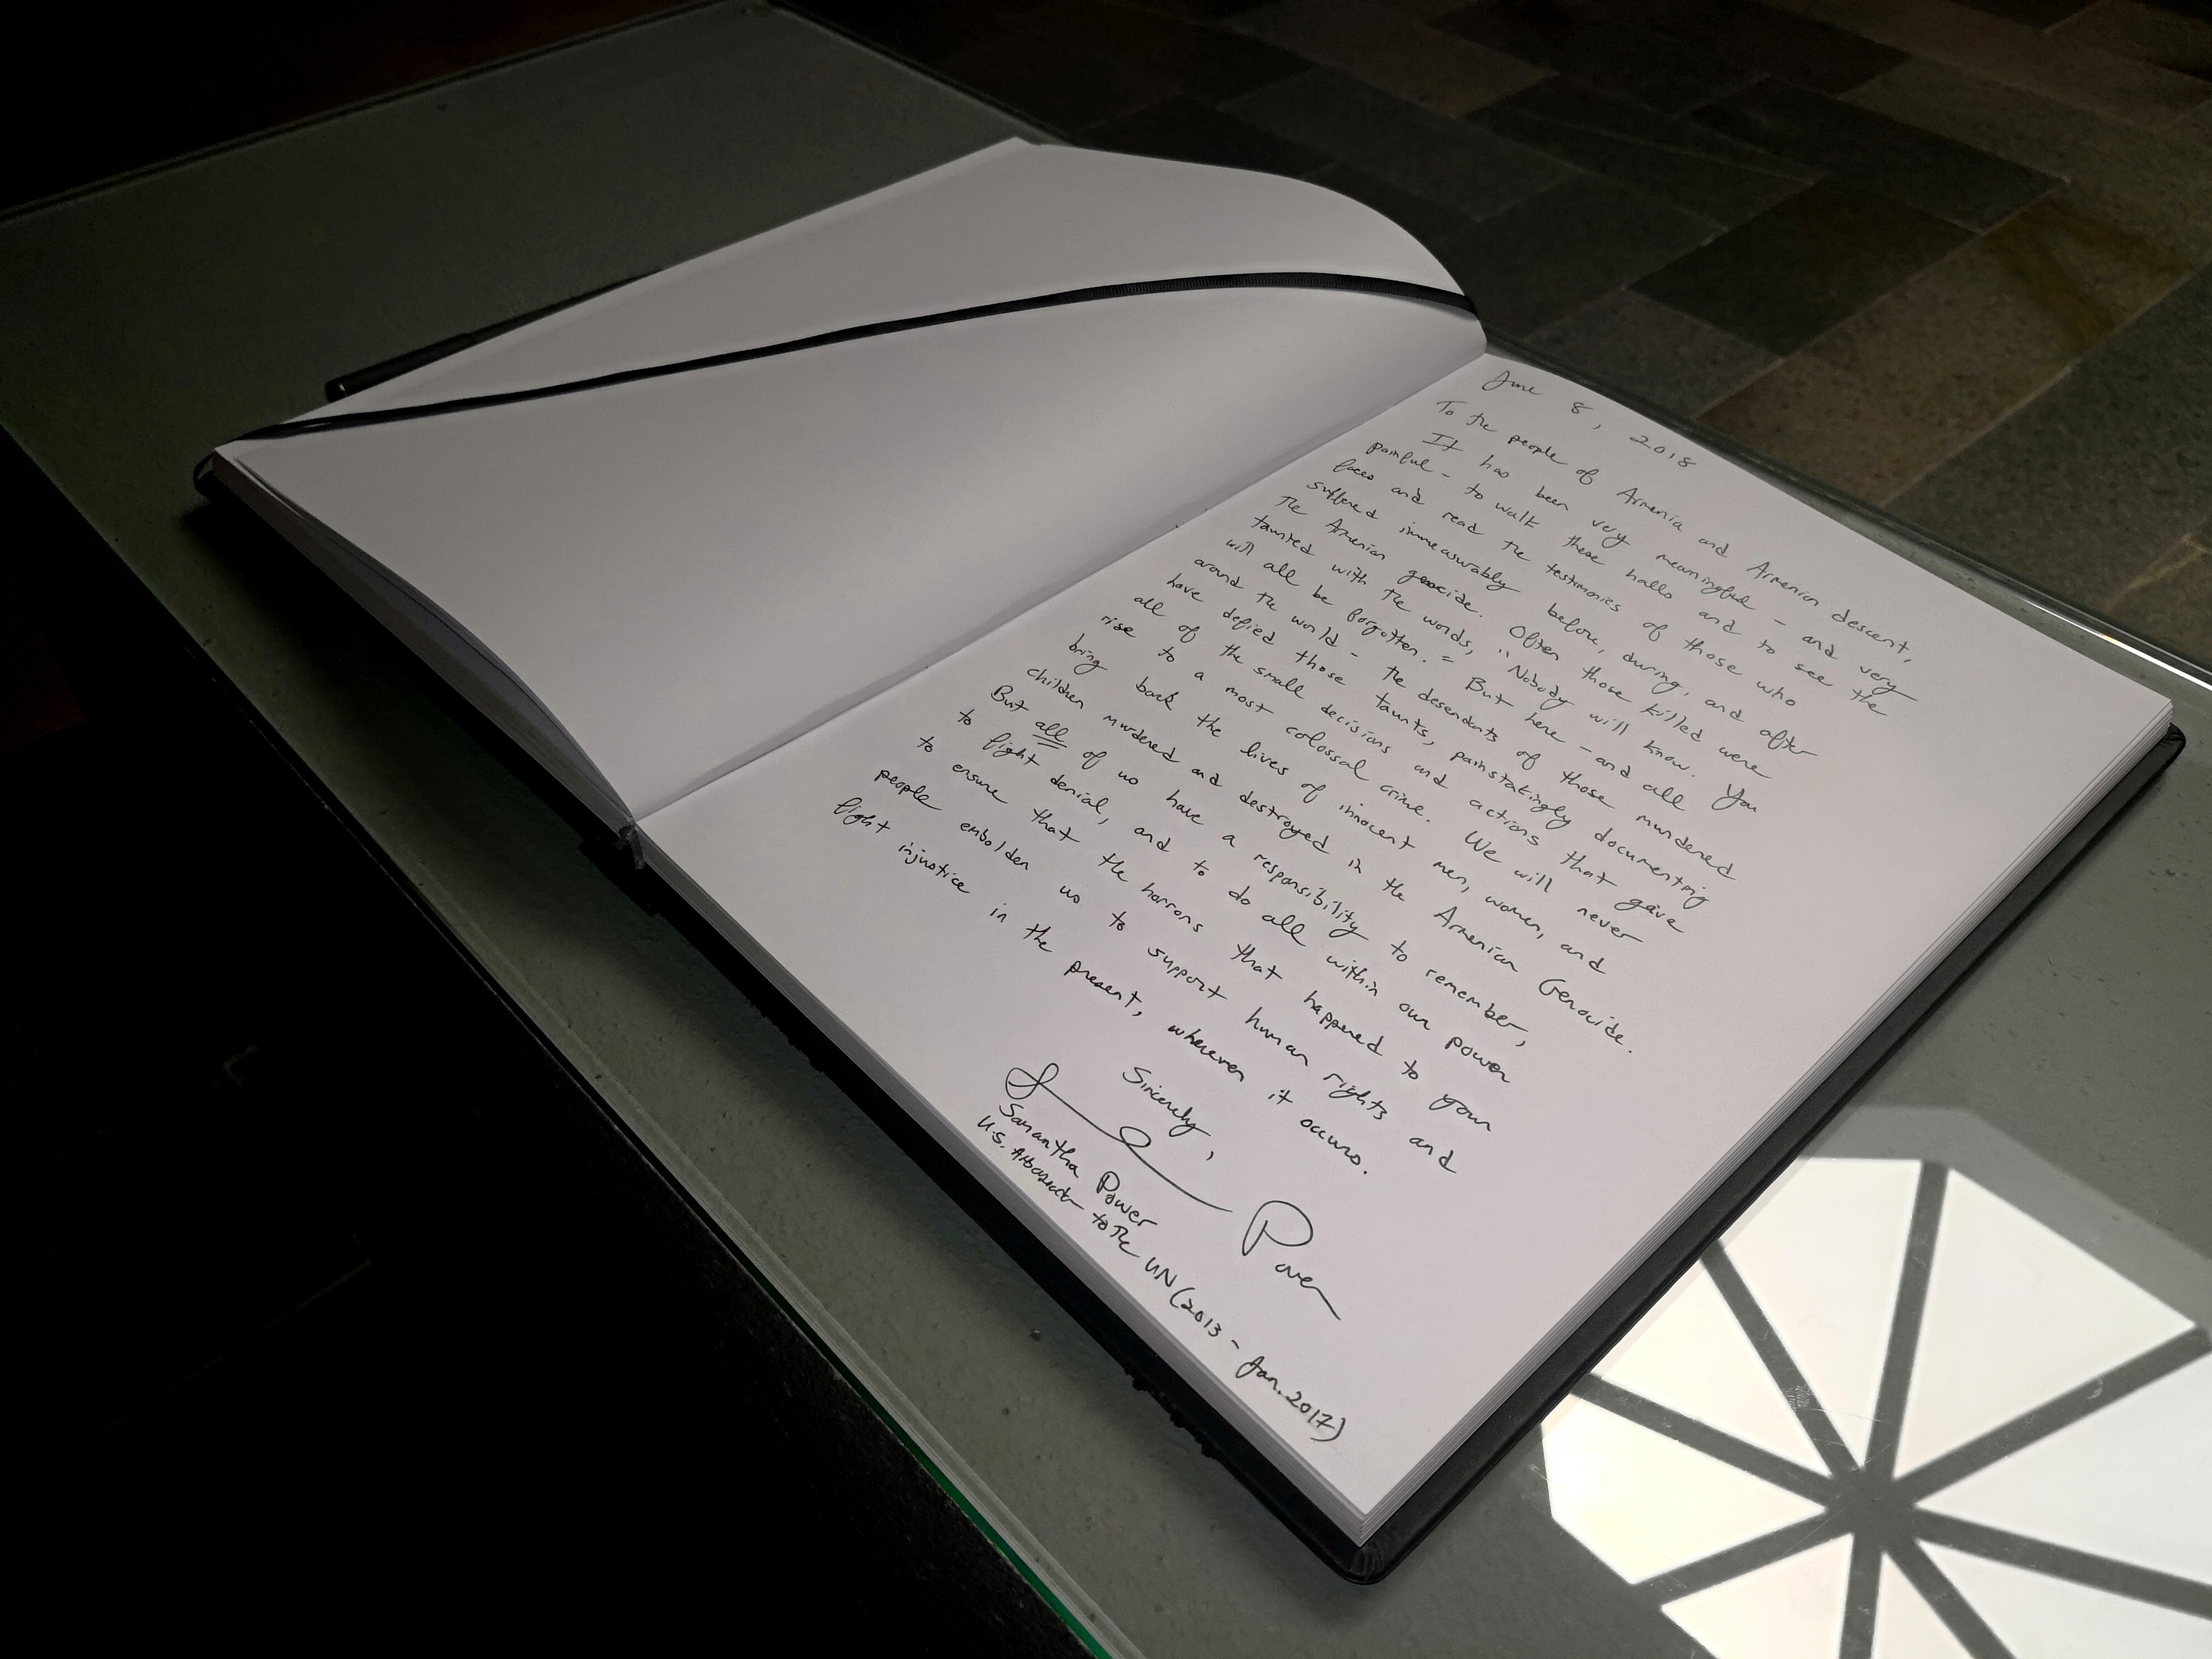 June 8, 2018
To the people of Armenia and Armenian descent,
It has been very meaningful - and very
painful - to walk these halls and to see the
faces and read the testimonies of those who
suffered immeasurably before, during, and after
The Armenian genocide. Often those killed were
taunted with the words, "Nobody will know. You
will all be forgotten." But here - and all
around the world - the descendants of those murdered
have defied those taunts, painstakingly documenting
all of the small decisions and actions that gave
rise to a most colossal crime. We will never
bring back the lives of innocent men, women, and
children murdered and destroyed in the Armenian Genocide.
But all of us have a responsibility to remember,
to fight denial, and to do all within our power
to ensure that the horrors that happened to your
people embolden us to support human rights and
fight injustice in the present, wherever it occurs.
Sincerely,
S Power
Samantha Power
U.S. Ambassador to the UN (2013 - Jan. 2017)